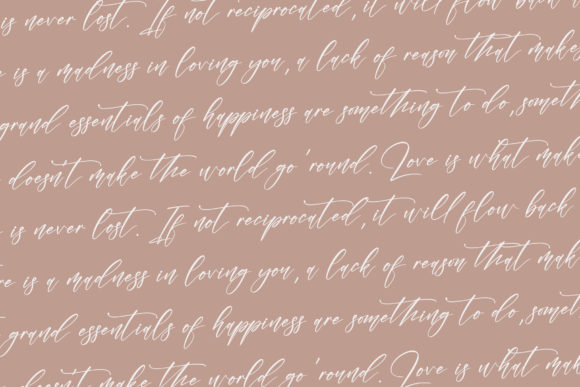 is never lost. If not reciprocated, it will flow back
is a madness in loving you, a lack of reason that makes
grand essentials of happiness are something to do, someth
doesn't make the world go 'round. Love is what mak
is never lost. If not reciprocated, it will flow back
re is a madness in loving you, a lack of reason that mak
grand essentials of happiness are something to do, somet
doesn't make the world go 'round. Love is what mak